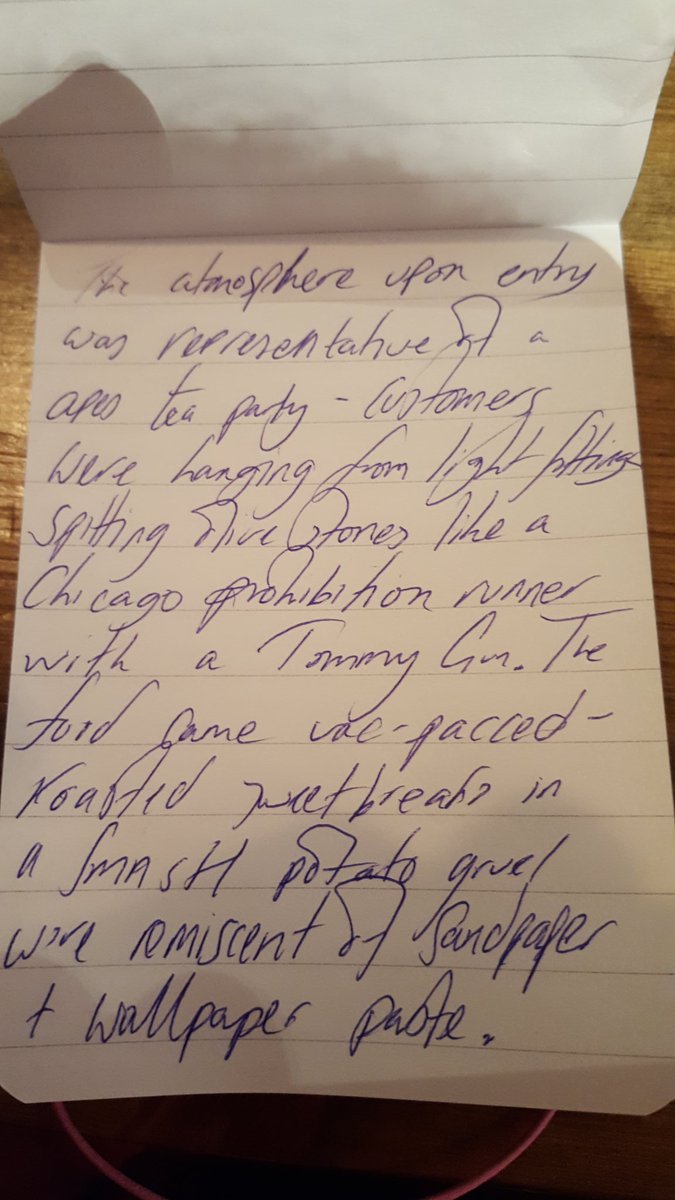 The atmosphere upon entry
was representative of a
apes tea party - Customers
were hanging from light fittings
spitting olive stones like a
Chicago prohibition runner
with a Tommy Gun. The
food came vac-pacced -
roasted sweetbreads in
a SMASH potato gruel
were remiscent of sandpaper
+ wallpaper paste.